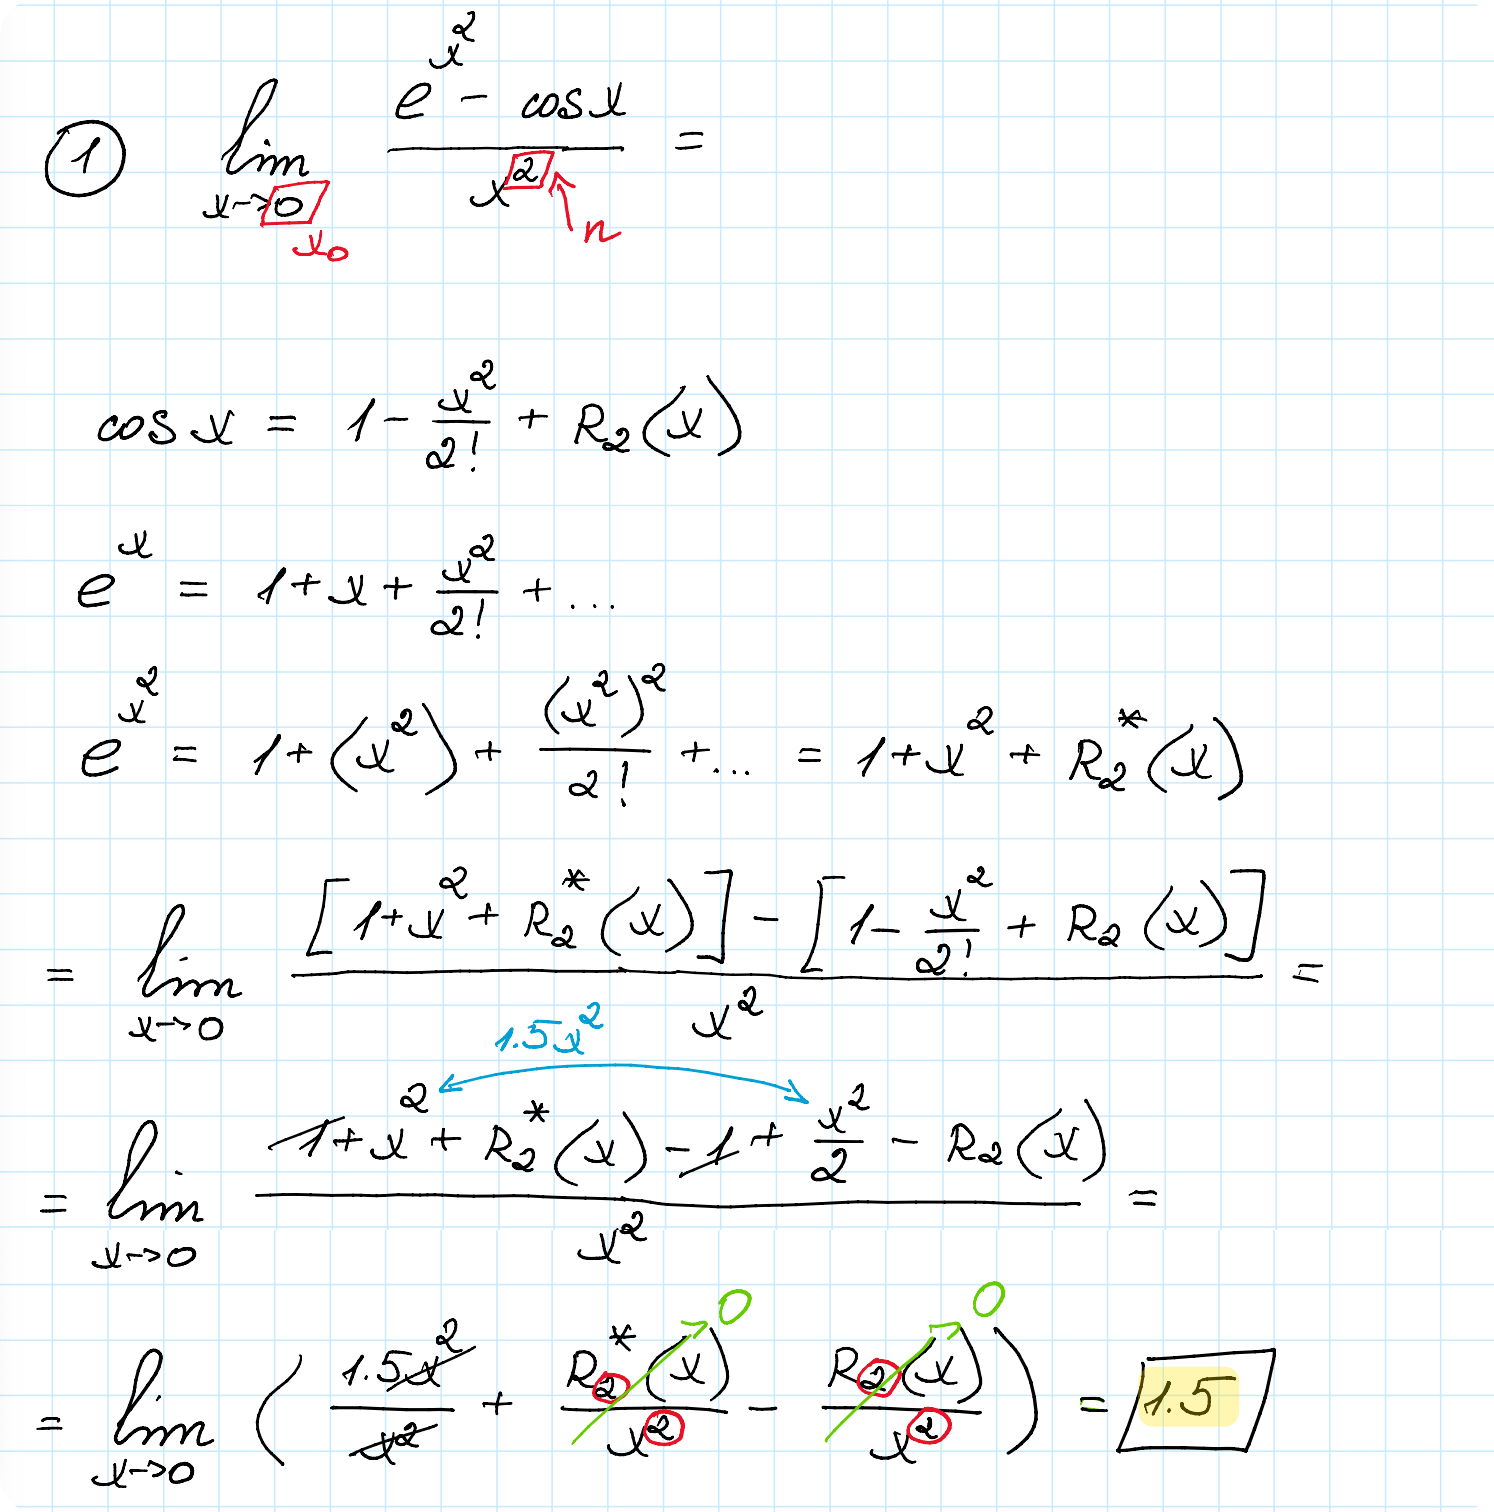 ① lim_{x→0} (e^{x^2} - cos x) / x^2 =
x_0
n
cos x = 1 - x^2/2! + R_2(x)
e^x = 1 + x + x^2/2! + ...
e^{x^2} = 1 + (x^2) + (x^2)^2/2! + ... = 1 + x^2 + R_2^*(x)
= lim_{x→0} ([1 + x^2 + R_2^*(x)] - [1 - x^2/2! + R_2(x)]) / x^2 =
1.5x^2
= lim_{x→0} (1 + x^2 + R_2^*(x) - 1 + x^2/2 - R_2(x)) / x^2 =
0 0
= lim_{x→0} (1.5x^2/x^2 + R_2^*(x)/x^2 - R_2(x)/x^2) = 1.5